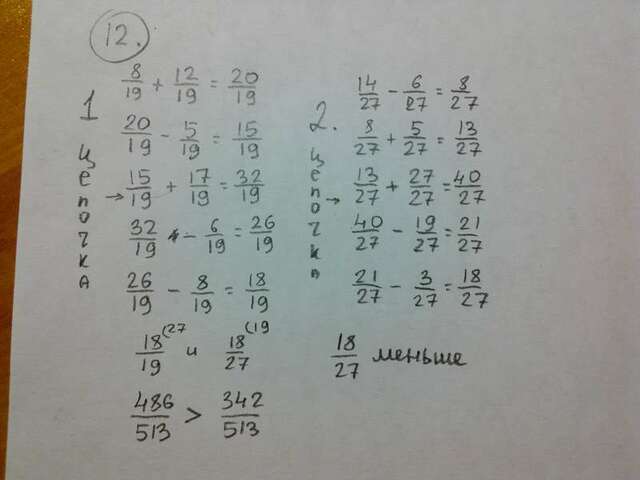 12.
1 цепочка
8/19 + 12/19 = 20/19
20/19 - 5/19 = 15/19
→ 15/19 + 17/19 = 32/19
32/19 - 6/19 = 26/19
26/19 - 8/19 = 18/19
18/19 (27 и 18/27 (19
486/513 > 342/513
2. цепочка
14/27 - 6/27 = 8/27
8/27 + 5/27 = 13/27
→ 13/27 + 27/27 = 40/27
40/27 - 19/27 = 21/27
21/27 - 3/27 = 18/27
18/27 меньше